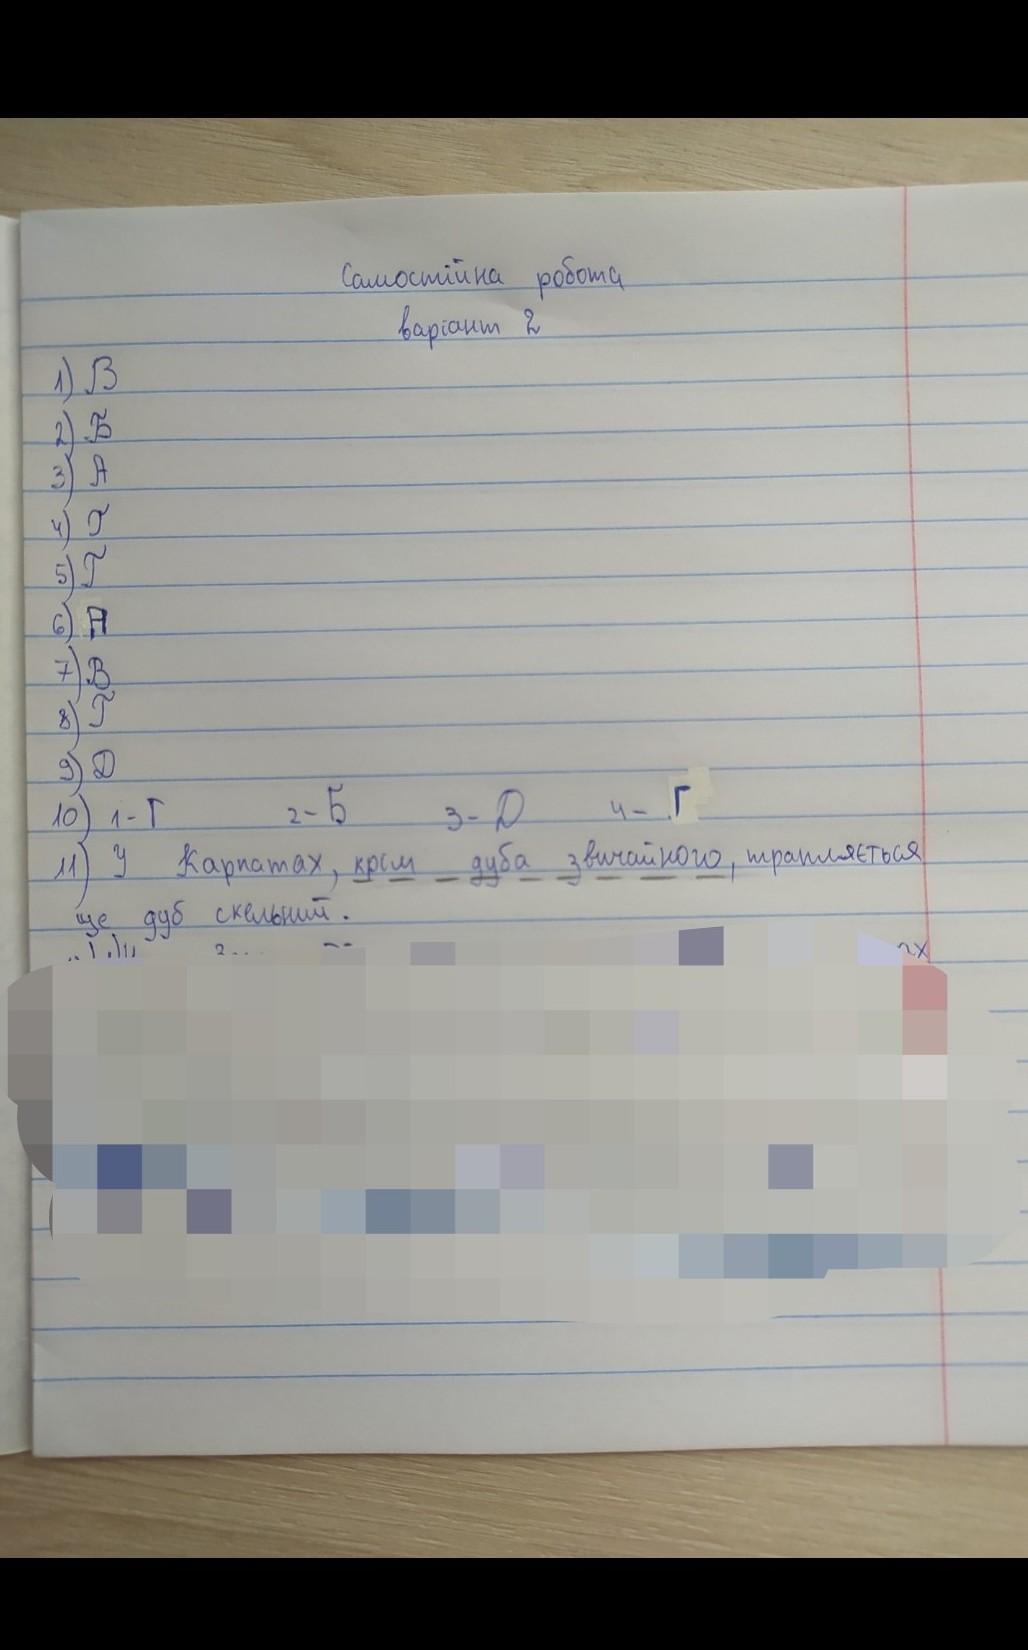 Самостійна робота
варіант 2
1) В
2) Б
3) А
4) Г
5) Г
6) А
7) В
8) Г
9) Д
10) 1-Г 2-Б 3-Д 4-Г
11) У Карпатах, крім дуба звичайного, трапляється
ще дуб скельний.